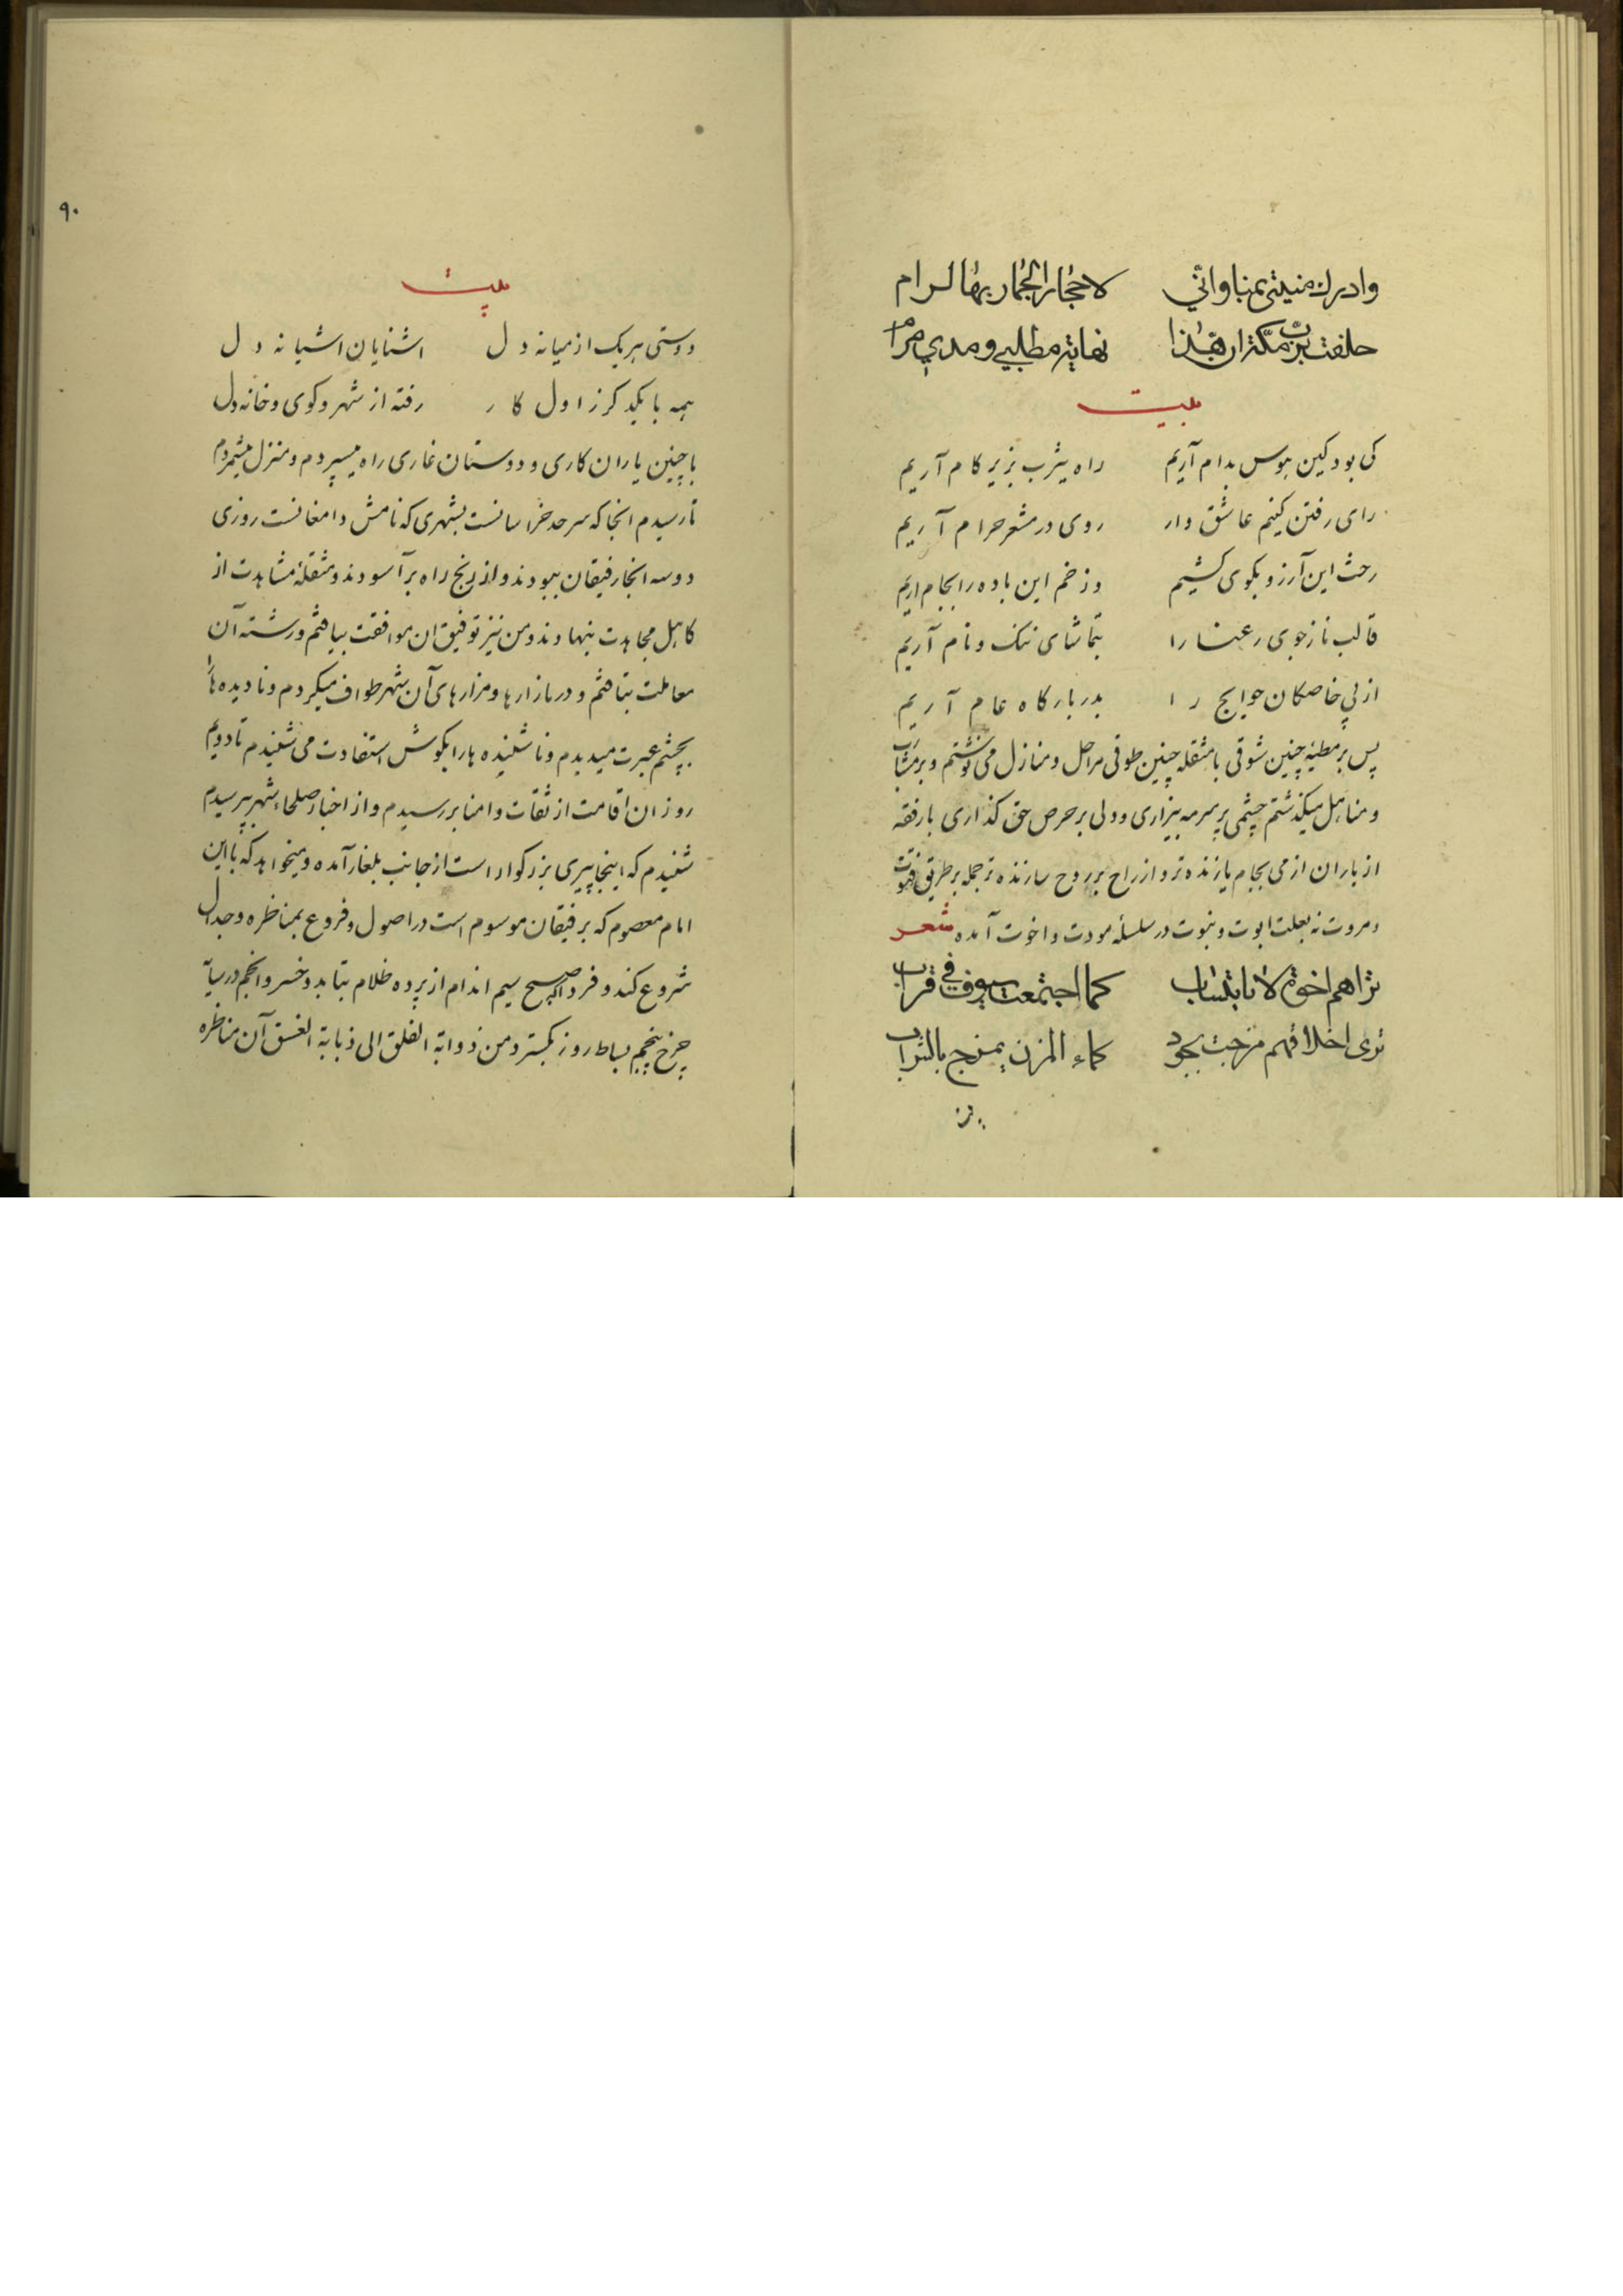 وادرك منیتی بمنا وانّی لاحجار الجمار بها لرام
حلفت بربّ مکّة ان هذا نهایة مطلبی و مدی مرام
بیت
کی بود کین هوس بدام آریم راه یثرب بزیر کام آریم
رای رفتن کنیم عاشق وار روی در مشعر حرام آریم
رخت این آرزو بکوی کشیم وز خم این باده را بجام اریم
قالب نازجوی رعنا را بتماشای ننک و نام آریم
از پی خاصکان حوایج را بدر بارکاه عام آریم
پس بر مطیهٔ چنین شوقی با مثقلهٔ چنین طوقی مراحل و منازل می نوشتم و بر مشارب
و مناهل میکذشتم چشمی پر سرمه بیزاری و دلی بر حرص حق کذاری با رفقه
از یاران از می بجام یازنده تر و از راح بروح سازنده تر جمله بر طریق فتوت
و مروت نه بعلت ابوت و بنوت در سلسله مودت و اخوت آمده شعر
تراهم اخوة لا بانتساب کما اجتمعت سیوف فی قراب
تری اخلاقهم مزجت بجود کماء المزن یمزج بالشراب
۹۰
بیت
دوستی هر یک از میانه دل اشنایان اشیانه دل
همه با یکدکر ز اول کار رفته از شهر و کوی و خانه دل
با چنین یاران کاری و دوستان غاری راه میسپردم و منزل میشمردم
تا رسیدم انجا که سرحد خراسانست بشهری که نامش دامغانست روزی
دو سه انجا رفیقان ببودند و از رنج راه برآسودند و مثقلهٔ مشاهدت از
کاهل مجاهدت بنهادند و من نیز توفیق ان موافقت بیافتم و رشته آن
معاملت بتافتم و در بازارها و مزارهای آن شهر طواف میکردم و نادیده ها را
بچشم عبرت میدیدم و ناشنیده ها را بکوش استفادت می شنیدم تا دویم
روز ان اقامت از ثقات و امنا بررسیدم و از اخبار صلحاء شهر بپرسیدم
شنیدم که اینجا پیری بزرکوار است از جانب بلغار آمده و میخواهد که با این
امام معصوم که بر فیقان موسوم است در اصول و فروع بمناظره و جدال
شروع کند و فردا که صبح سیم اندام از پرده ظلام بتابد و خسرو انجم در سیاّ
چرخ پنجم بساط روز بکسترد من ذوابة الفلق الی ذبابة الغسق آن مناظره